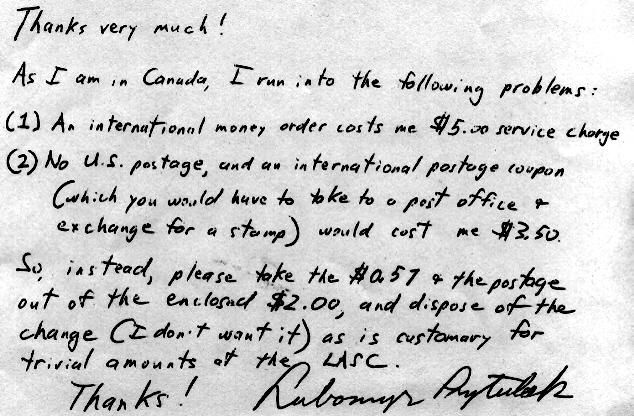 Thanks very much!
As I am in Canada, I run into the following problems:
(1) An international money order costs me $5.00 service charge
(2) No U.S. postage, and an international postage coupon
(which you would have to take to a post office &
exchange for a stamp) would cost me $3.50.
So, instead, please take the $0.57 & the postage
out of the enclosed $2.00, and dispose of the
change (I don't want it) as is customary for
trivial amounts at the LASC.
Thanks! Lubomyr Prytulak